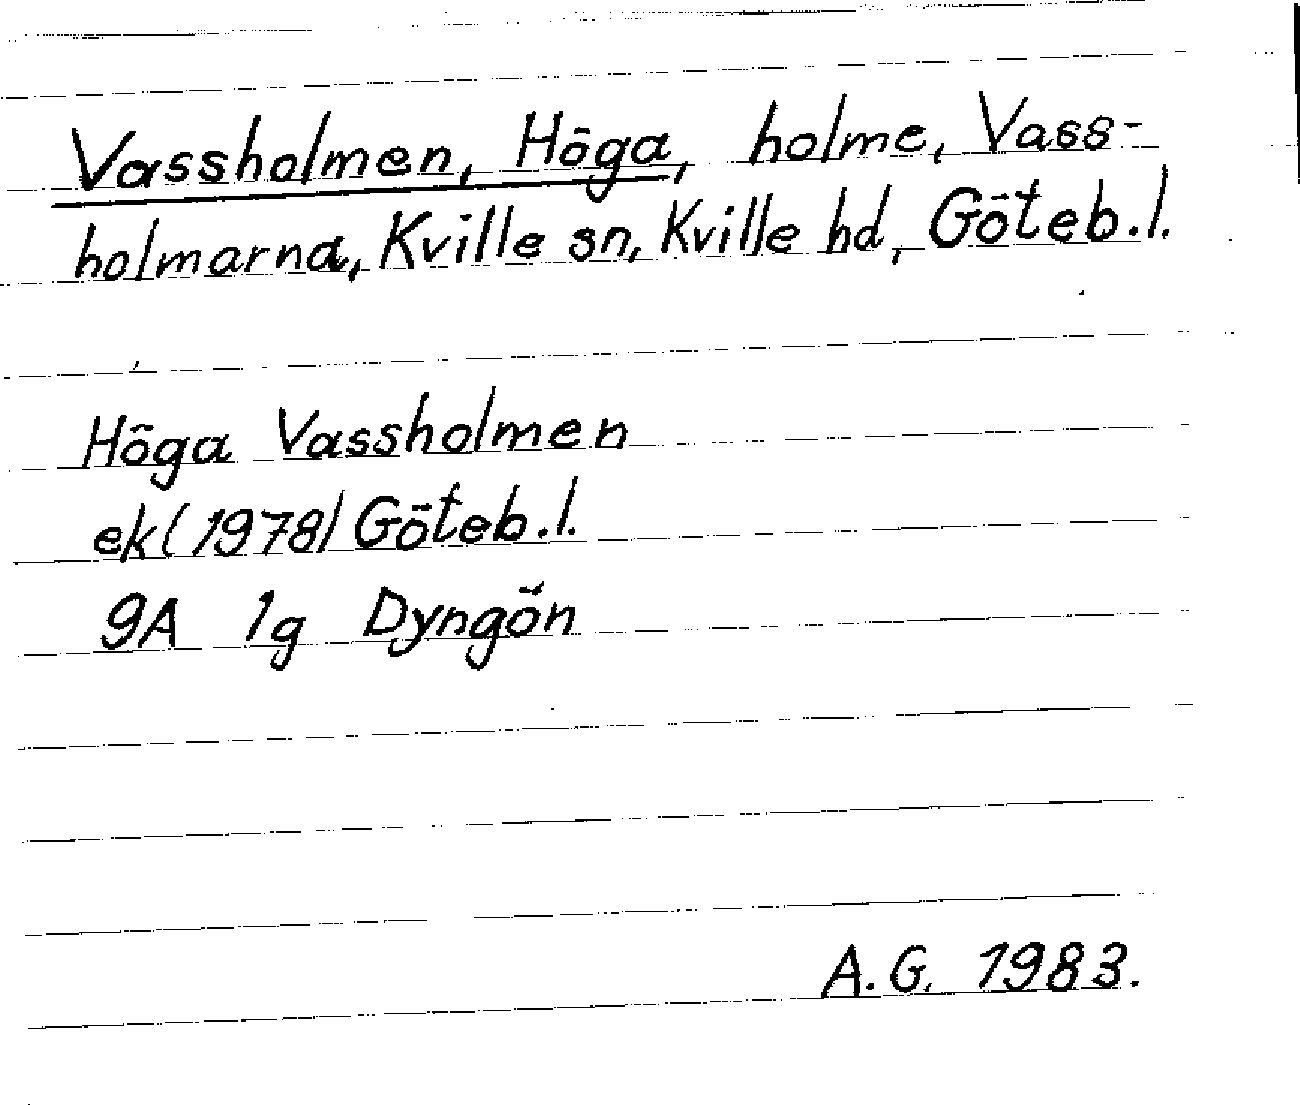 Vassholmen, Höga, holme, Vass-
holmarna, Kville sn, Kville hd, Göteb.l.
Höga Vassholmen
ek(1978) Göteb.l.
9A 1g Dyngön
A.G. 1983.